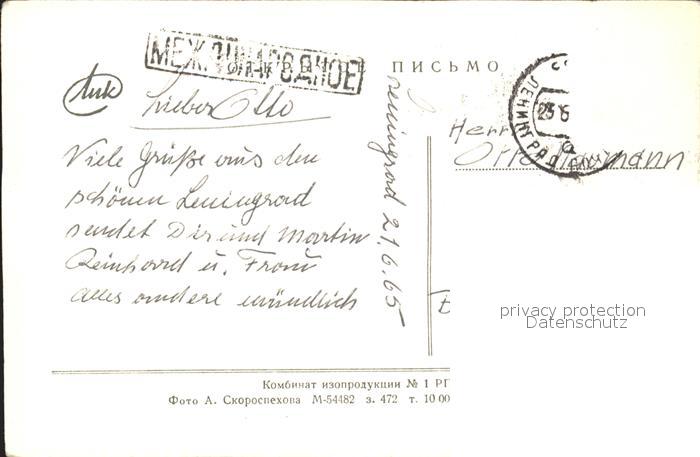 МЕЖДУНАРОДНОЕ
ПИСЬМО
Lieber Otto
Viele Grüße aus den
schönen Leningrad
sendet Dir und Martin
Reinhard u. Frau
alles andere mündlich
Leningrad 21.6.65
ЛЕНИНГРАД
23 6
Herr
Otto
privacy protection
Datenschutz
Комбинат изопродукции № 1 РГ
Фото А. Скороспехова М-54482 з. 472 т. 10 00